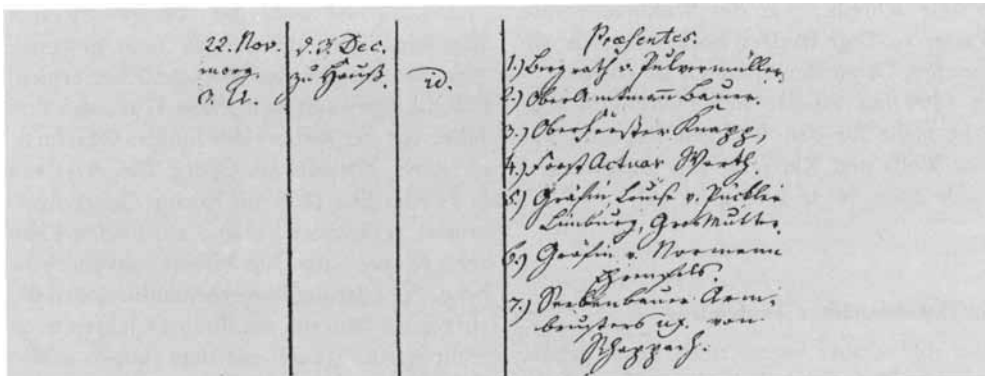 22. Nov.
morg.
3. U.
d. 3. Dec.
zu Hauß.
id.
Præsentes.
1.) Bergrath v. Pulvermüller,
2.) OberAmtmann Bauer.
3.) Oberförster Knapp,
4.) Forst Actuar Werth.
5.) Gräfin Louise v. Pückler
Limburg, GrosMutter.
6.) Gräfin v. Normann
Ehrenfels
7.) Seebenbauer Arm-
brusters ux. von
Schappach.